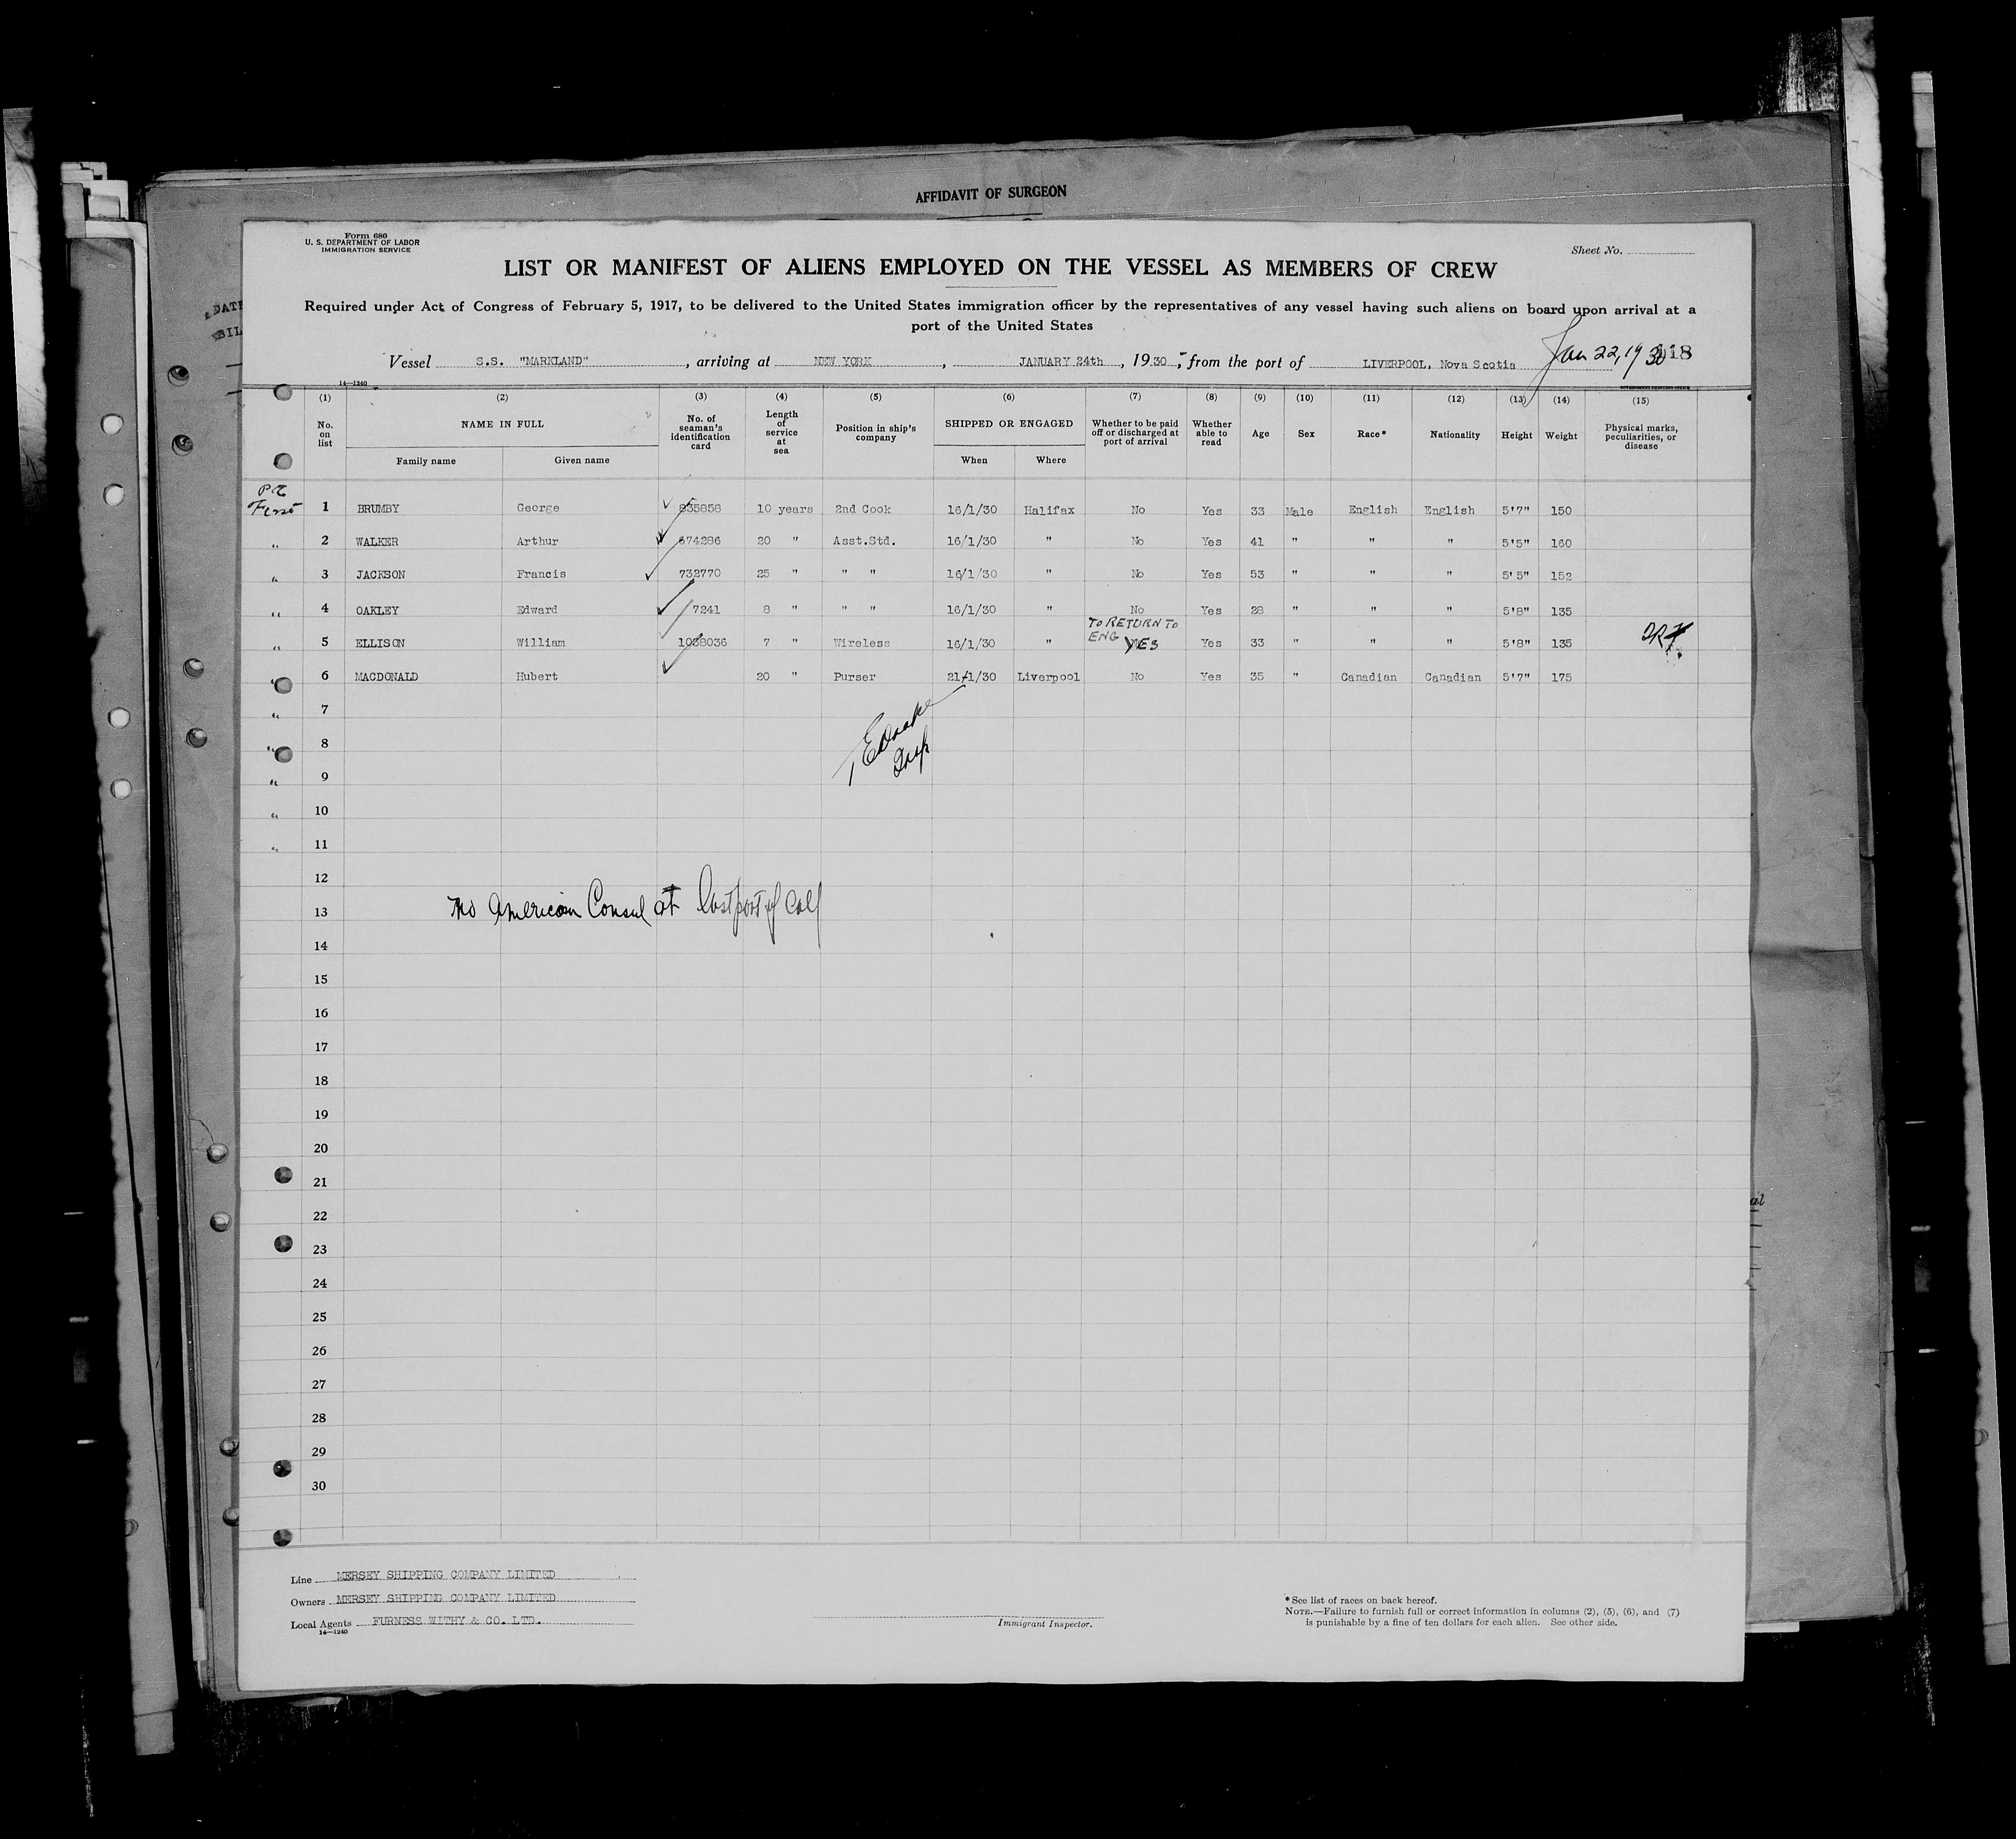 AFFIDAVIT OF SURGEON
Form 680
U. S. DEPARTMENT OF LABOR
IMMIGRATION SERVICE
Sheet No.
LIST OR MANIFEST OF ALIENS EMPLOYED ON THE VESSEL AS MEMBERS OF CREW
Required under Act of Congress of February 5, 1917, to be delivered to the United States immigration officer by the representatives of any vessel having such aliens on board upon arrival at a
port of the United States
Vessel S.S. "MARKLAND", arriving at NEW YORK, JANUARY 24th, 1930, from the port of LIVERPOOL, Nova Scotia Jan 22, 1930 118
14—1240
(1) (2) (3) (4) (5) (6) (7) (8) (9) (10) (11) (12) (13) (14) (15)
No. on list NAME IN FULL No. of seaman's identification card Length of service at sea Position in ship's company SHIPPED OR ENGAGED Whether to be paid off or discharged at port of arrival Whether able to read Age Sex Race* Nationality Height Weight Physical marks, peculiarities, or disease
Family name Given name When Where
1 BRUMBY George 835858 10 years 2nd Cook 16/1/30 Halifax No Yes 33 Male English English 5'7" 150
" 2 WALKER Arthur 674286 20 " Asst.Std. 16/1/30 " No Yes 41 " " " 5'5" 160
" 3 JACKSON Francis 732770 25 " " " 16/1/30 " No Yes 53 " " " 5'5" 152
" 4 OAKLEY Edward 7241 8 " " " 16/1/30 " No Yes 28 " " " 5'8" 135
TO RETURN TO
" 5 ELLISON William 1038036 7 " Wireless 16/1/30 " ENG YES Yes 33 " " " 5'8" 135
" 6 MACDONALD Hubert 20 " Purser 21/1/30 Liverpool No Yes 35 " Canadian Canadian 5'7" 175
" 7
" 8
" 9
" 10
" 11
12
No American Consul at last port of call
13
14
15
16
17
18
19
20
21
22
23
24
25
26
27
28
29
30
Line MERSEY SHIPPING COMPANY LIMITED
Owners MERSEY SHIPPING COMPANY LIMITED
Local Agents FURNESS WITHY & CO. LTD.
14—1240
Immigrant Inspector.
* See list of races on back hereof.
NOTE.—Failure to furnish full or correct information in columns (2), (5), (6), and (7)
is punishable by a fine of ten dollars for each alien. See other side.